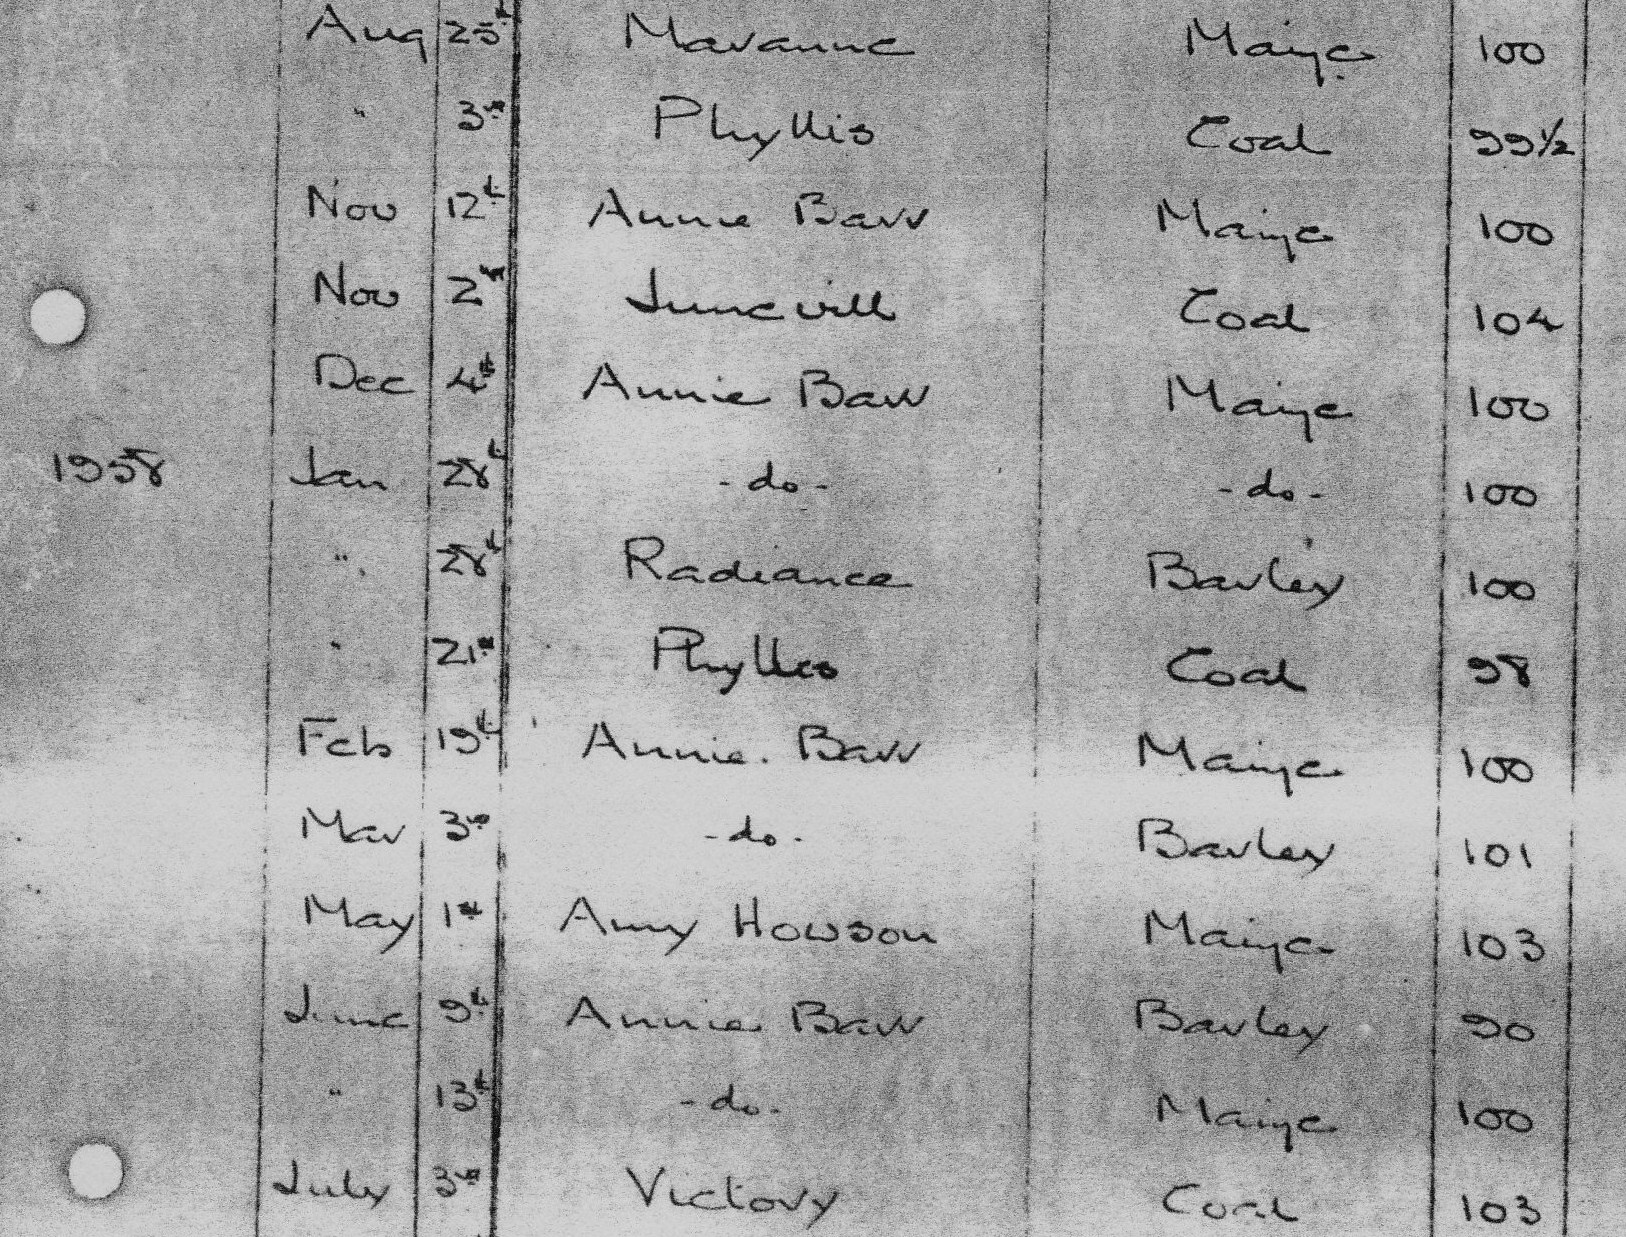 Aug 25th Maranne Maize 100
" 3rd Phyllis Coal 99½
Nov 12th Annie Barr Maize 100
Nov 2nd Juneville Coal 104
Dec 4th Annie Barr Maize 100
1958 Jan 28th -do- -do- 100
" 28th Radiance Barley 100
" 21st Phyllis Coal 98
Feb 19th Annie. Barr Maize 100
Mar 3rd -do- Barley 101
May 1st Amy Howson Maize 103
June 9th Annie Barr Barley 90
" 13th -do- Maize 100
July 3rd Victory Coal 103